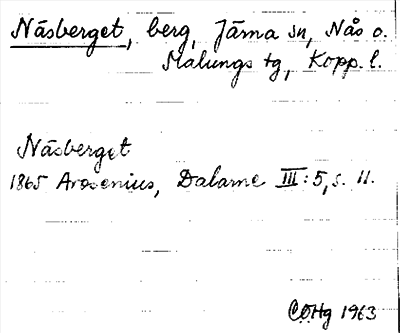 Näsberget, berg, Järna sn, Nås o.
Malungs tg, Kopp. l.
Näsberget
1865 Arosenius, Dalarne III:5, s. 11.
CÖHg 1963